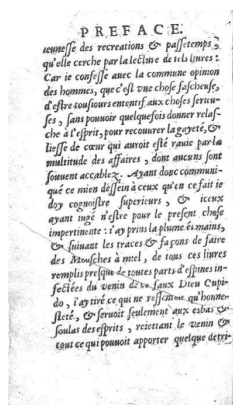 PREFACE.
ieunesse des recreations & passetemps,
qu'elle cerche par la lecture de tels liures :
Car ie confesse auec la commune opinion
des hommes, que c'est vne chose fascheuse,
d'estre tousiours ententif aux choses serieu-
ses, sans pouuoir quelquefois donner relas-
che à l'esprit, pour recouurer la gayeté, &
liesse de cœur qui auroit esté rauie par la
multitude des affaires, dont aucuns sont
souuent accablez. Ayant donc communi-
qué ce mien dessein à ceux qu'en ce fait ie
doy cognoistre superieurs, & iceux
ayant iugé n'estre pour le present chose
impertinente : i'ay prins la plume és mains,
& suiuant les traces & façons de faire
des Mousches à miel, de tous ces liures
remplis presque de toutes parts d'espines in-
fectées du venin de ce faux Dieu Cupi-
do, i'ay tiré ce qui ne ressentoit qu'honne-
steté, & seruoit seulement aux esbas &
soulas des esprits, reiettant le venin &
tout ce qui pouuoit apporter quelque detri-